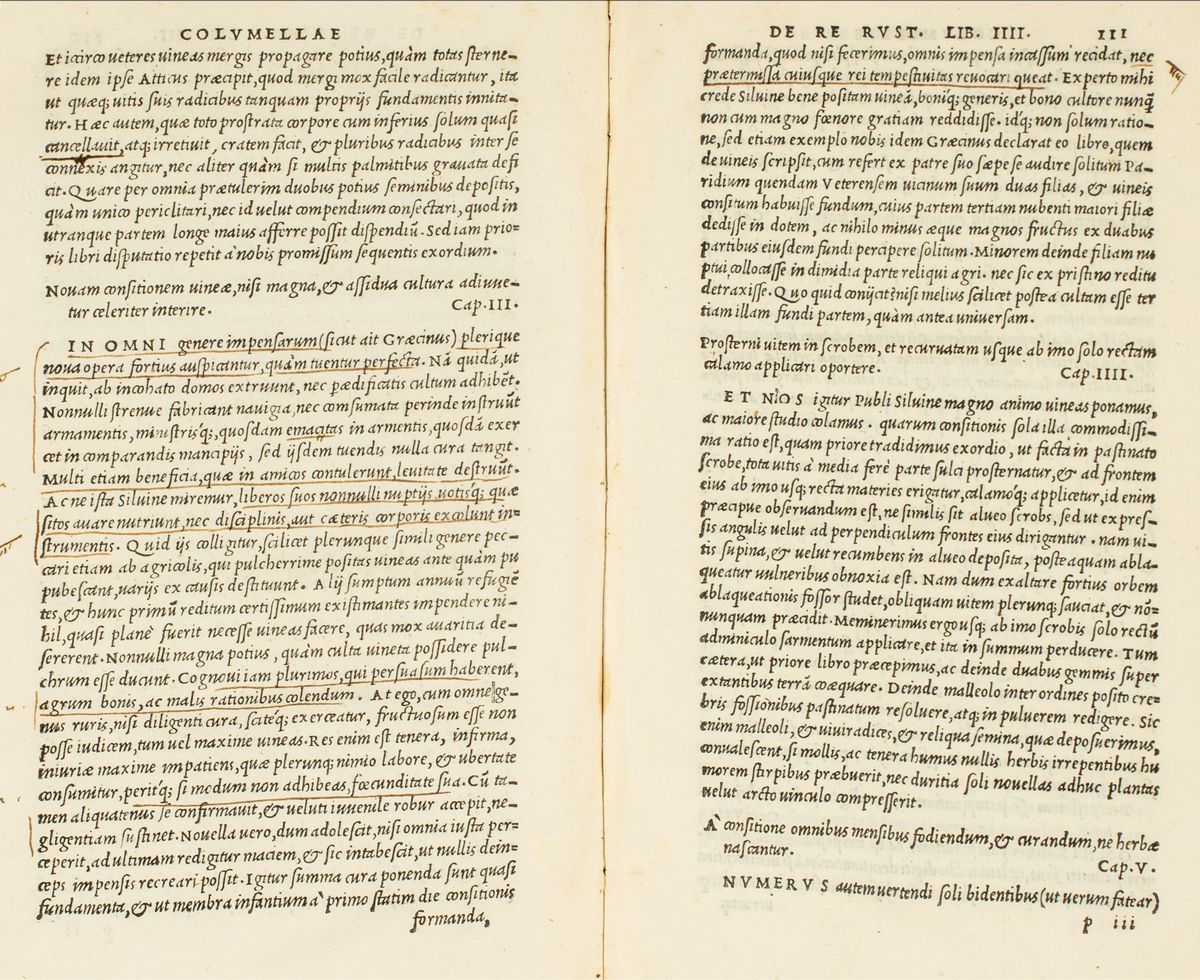 COLVMELLAE
Et iciirco veteres vineas mergis propagare potius, quàm totas sterne-
re idem ipse Atticus præcipit, quod mergi mox facile radicantur, ita
ut quæq; uitis suis radicibus tanquam proprijs fundamentis innita-
tur. Hæc autem, quæ toto prostrata corpore cum inferius solum quasi
cancellauit, atq; irretiuit, cratem facit, & pluribus radicibus inter se
connexis angitur, nec aliter quàm si multis palmitibus grauata defi
cit. Quare per omnia prætulerim duobus potius seminibus depositis,
quàm unico periclitari, nec id uelut compendium consectari, quod in
utranque partem longe maius afferre possit dispendiũ. Sed iam prio-
ris libri disputatio repetit à nobis promissum sequentis exordium.
Nouam consitionem uineæ, nisi magna, & assidua cultura adiuue-
tur celeriter interire. Cap. III.
IN OMNI genere impensarum (sicut ait Græcinus) plerique
noua opera fortius auspicantur, quàm tuentur perfecta. Nã quidã, ut
inquit, ab incohato domos extruunt, nec pædificatis cultum adhibẽt.
Nonnulli strenue fabricant nauigia, nec consumata perinde instruũt
armamentis, ministrisq;, quosdam emacitas in armentis, quosdã exer
cet in comparandis mancipijs, sed ijsdem tuendis nulla cura tangit.
Multi etiam beneficia, quæ in amicos contulerunt, leuitate destruũt.
Ac ne ista Siluine miremur, liberos suos nonnulli nuptijs uotisq; quæ
sitos auare nutriunt, nec disciplinis, aut cæteris corporis excolunt in-
strumentis. Quid ijs colligitur, scilicet plerunque simili genere pec-
cari etiam ab agricolis, qui pulcherrime positas uineas ante quàm pu
pubescant, uarijs ex causis destituunt. Alij sumptum annuũ refugiẽ
tes, & hunc primũ reditum certissimum existimantes impendere ni-
hil, quasi planè fuerit necesse uineas facere, quas mox auaritia de-
sererent. Nonnulli magna potius, quàm culta uineta possidere pul-
chrum esse ducunt. Cognoui iam plurimos, qui persuasum haberent,
agrum bonis, ac malis rationibus colendum. At ego, cum omne ge-
nus ruris, nisi diligenti cura, sciteq; exerceatur, fructuosum esse non
posse iudicem, tum uel maxime uineas. Res enim est tenera, infirma,
iniuriæ maxime impatiens, quæ plerunq; nimio labore, & ubertate
consumitur, peritq; si modum non adhibeas, fœcunditate sua. Cũ ta-
men aliquatenus se confirmauit, & ueluti iuuenile robur accepit, ne-
gligentiam sustinet. Nouella uero, dum adolescit, nisi omnia iusta per-
ceperit, ad ultimam redigitur maciem, & sic intabescit, ut nullis dein-
ceps impensis recreari possit. Igitur summa cura ponenda sunt quasi
fundamenta, & ut membra infantium à primo statim die consitionis
formanda,
DE RE RVST. LIB. IIII. 111
formanda, quod nisi fecerimus, omnis impensa incassum recidat, nec
prætermissa cuiusque rei tempestiuitas reuocari queat. Experto mihi
crede Siluine bene positam uineã, boniq; generis, et bono cultore nunq̃
non cum magno fœnore gratiam reddidisse. idq; non solum ratio-
ne, sed etiam exemplo nobis idem Græcinus declarat eo libro, quem
de uineis scripsit, cum refert ex patre suo sæpe se audire solitum Pa-
ridium quendam Veterensem uicinum suum duas filias, & uineis
consitum habuisse fundum, cuius partem tertiam nubenti maiori filiæ
dedisse in dotem, ac nihilo minus æque magnos fructus ex duabus
partibus eiusdem fundi percipere solitum. Minorem deinde filiam nu
ptui collocasse in dimidia parte reliqui agri. nec sic ex pristino reditu
detraxisse. Quo quid conijcit? nisi melius scilicet postea cultam esse ter
tiam illam fundi partem, quàm antea uniuersam.
Prosterni uitem in scrobem, et recuruatam usque ab imo solo rectam
calamo applicari oportere. Cap. IIII.
ET NOS igitur Publi Siluine magno animo uineas ponamus,
ac maiore studio colamus. quarum consitionis sola illa commodissi-
ma ratio est, quam priore tradidimus exordio, ut facta in pastinato
scrobe, tota uitis à media ferè parte sulci prosternatur, & ad frontem
eius ab imo usq; recta materies erigatur, calamoq; applicetur, id enim
præcipue obseruandum est, ne similis sit alueo scrobs, sed ut expres-
sis angulis uelut ad perpendiculum frontes eius dirigantur. nam ui-
tis supina, & uelut recumbens in alueo deposita, postea quam abla-
queatur uulneribus obnoxia est. Nam dum exaltare fortius orbem
ablaqueationis fossor studet, obliquam uitem plerunq; sauciat, & nõ-
nunquam præcidit. Meminerimus ergo usq; ab imo scrobis solo rectũ
adminiculo sarmentum applicare, et ita in summum perducere. Tum
cætera, ut priore libro præcepimus, ac deinde duabus gemmis super
extantibus terrã coæquare. Deinde malleolo inter ordines posito cre-
bris fossionibus pastinatum resoluere, atq; in puluerem redigere. Sic
enim malleoli, & uiuiradices, & reliqua semina, quæ deposuerimus,
conualescent, si mollis, ac tenera humus nullis herbis irrepentibus hu
morem stirpibus præbuerit, nec duritia soli nouellas adhuc plantas
uelut arcto uinculo compresserit.
A consitione omnibus mensibus fodiendum, & curandum, ne herbæ
nascantur. Cap. V.
NVMERVS autem uertendi soli bidentibus (ut uerum fatear)
p iii